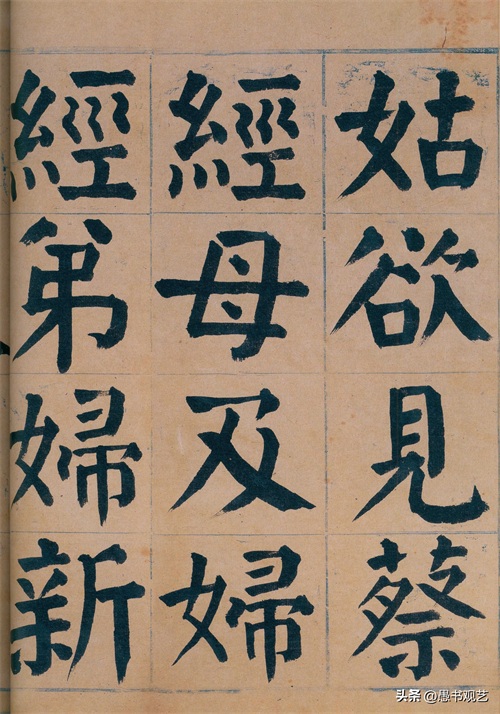 姑欲見蔡
經母及婦
經弟婦新
头条 @愚书观艺